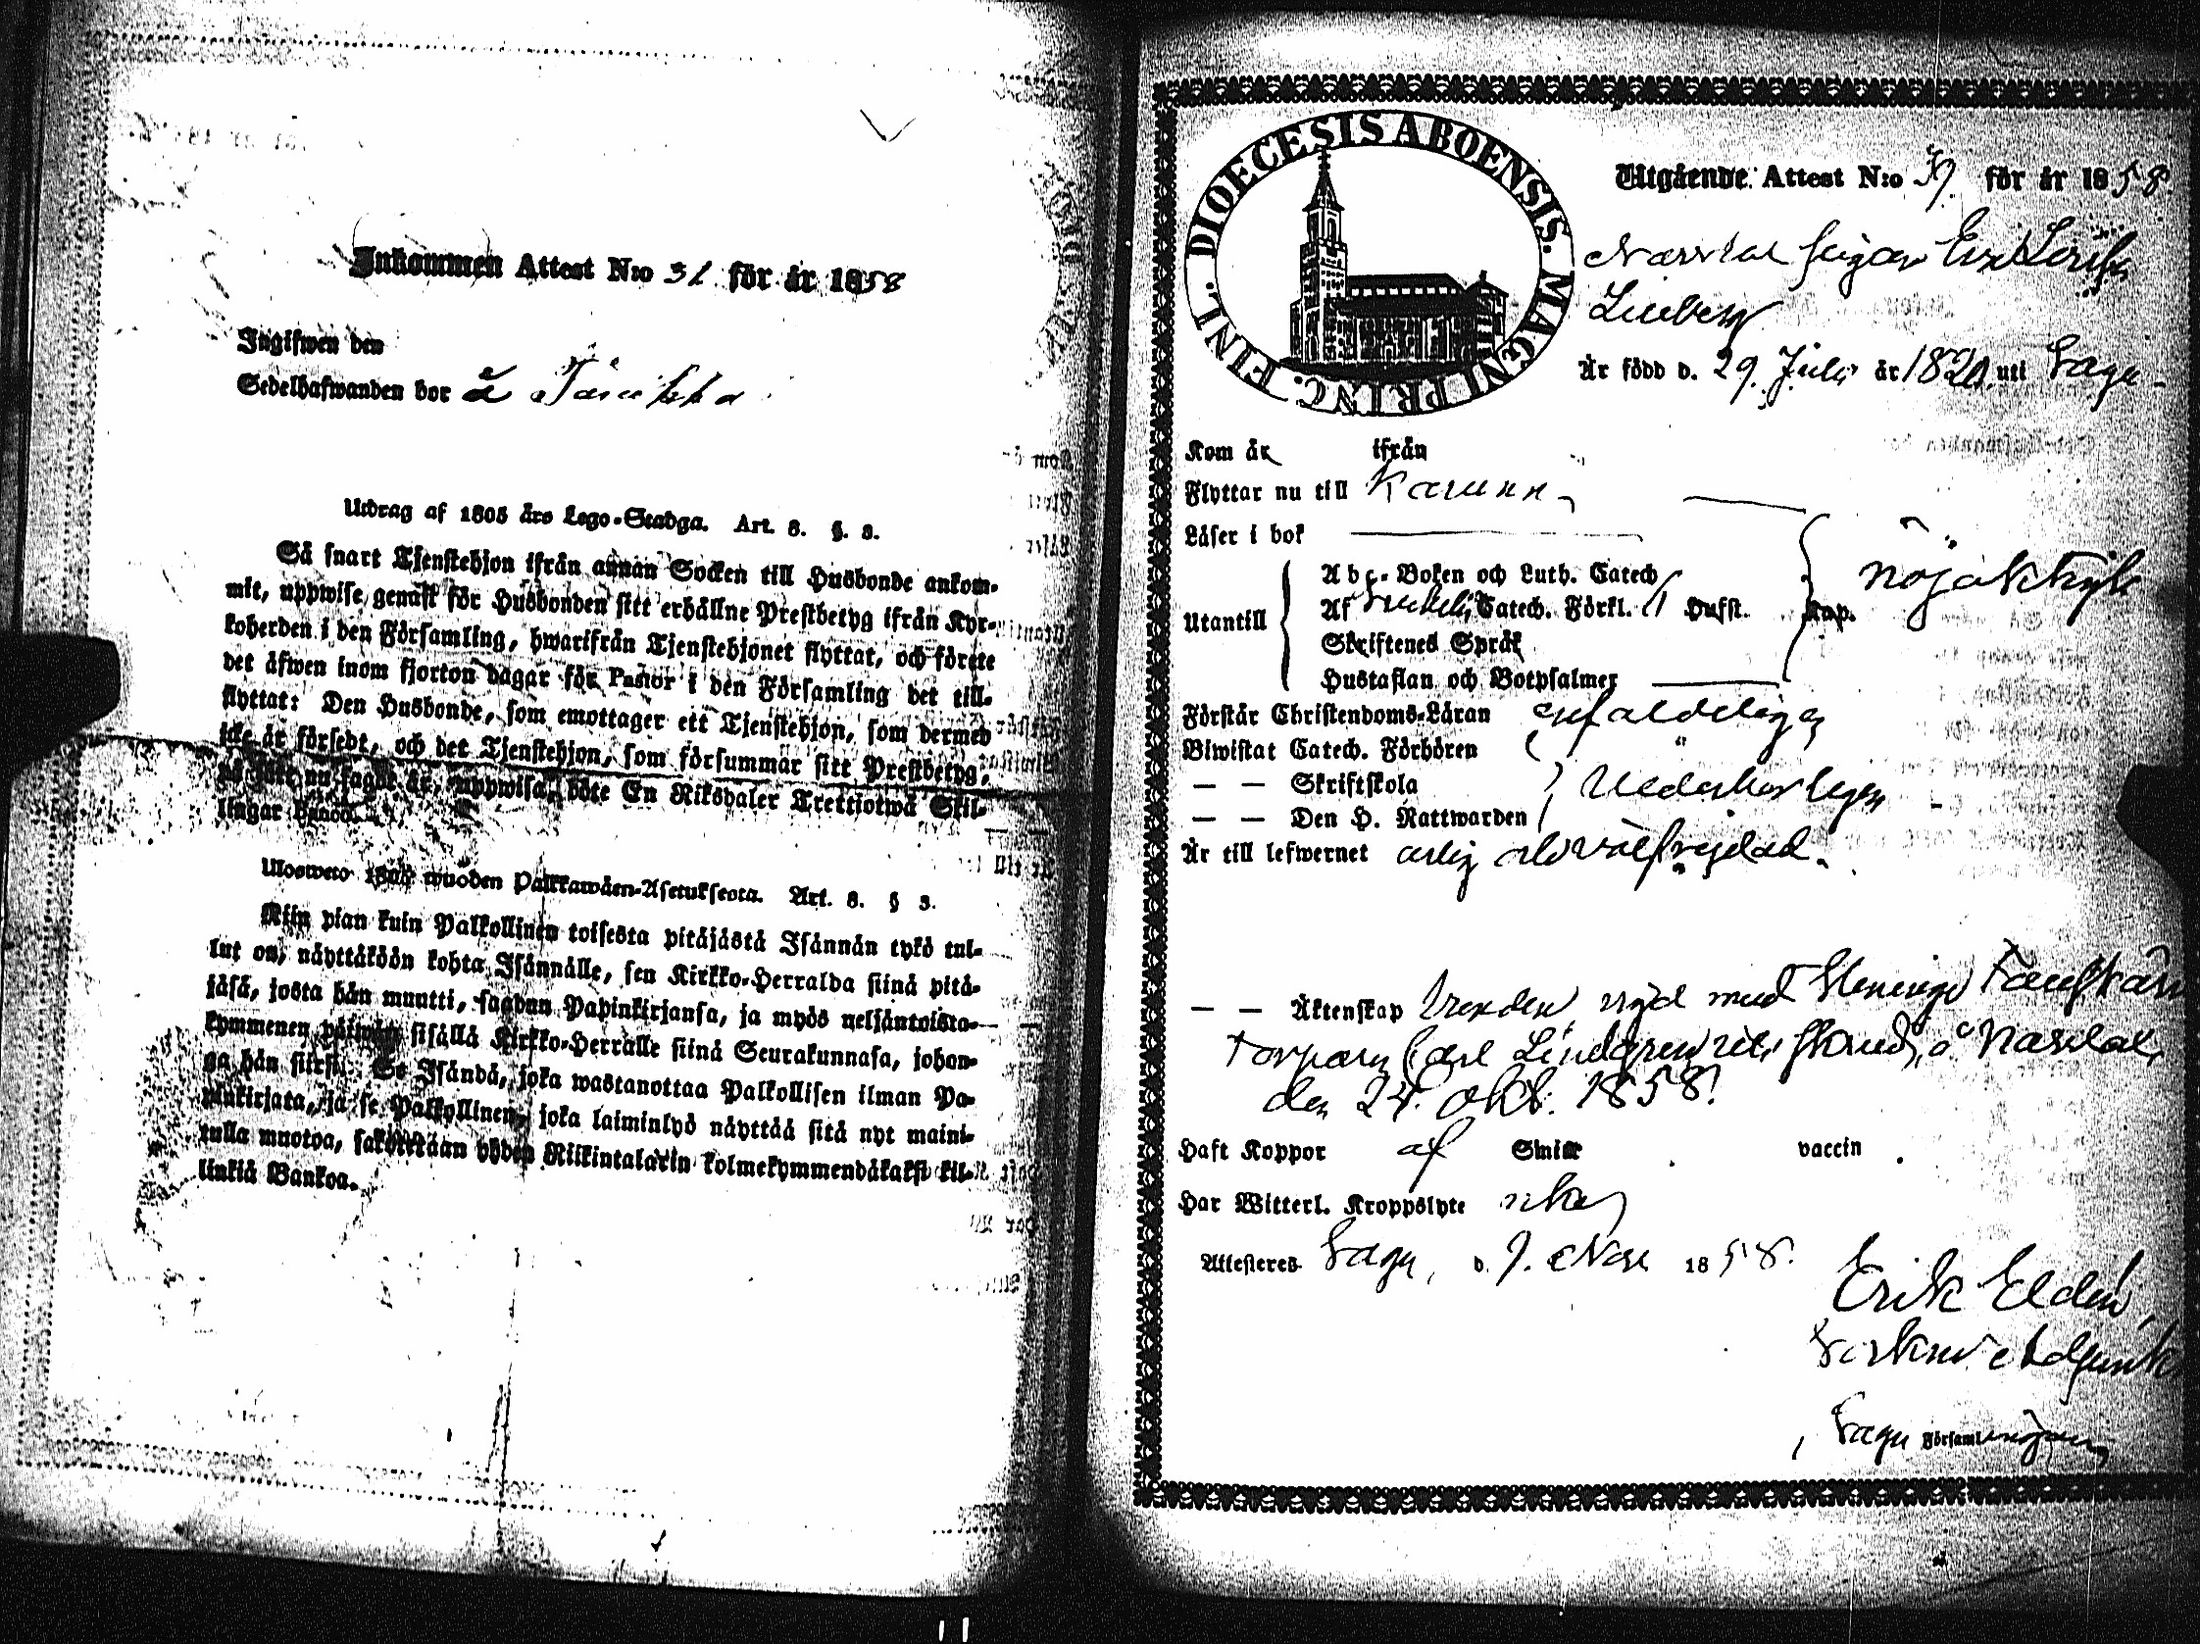 Inkommen Attest N:o 31 för år 1858
Ingifwen den
Sedelhafwanden bor å
Utdrag af 1805 års Lego-Stadga. Art. 8. §. 3.
Så snart Tjenstehjon ifrån annan Socken till Husbonde ankom-
mit, uppwise genast för Husbonden sitt erhållne Prestbetyg ifrån Kyr-
koherden i den Församling, hwarifrån Tjenstehjonet flyttat, och förete
det äfwen inom fjorton dagar för Pastor i den Församling det till-
flyttat: Den Husbonde, som emottager ett Tjenstehjon, som dermed
icke är försedt, och det Tjenstehjon, som försummar sitt Prestbetyg,
på sätt nu sagdt är, uppwisa, böte En Riksdaler Trettiotwå Skil-
lingar Banco.
Ulosweto 1805 wuoden Palkkawäen-Asetuksesta. Art. 8. § 3.
Niin pian kuin Palkollinen toisesta pitäjästä Isännän tykö tul-
lut on, näyttäköön kohta Isännälle, sen Kirkko-Herralda siinä pitä-
jäsä, josta hän muutti, saadun Papinkirjansa, ja myös neljäntoista-
kymmenen päiwän sisällä Kirkko-Herralle siinä Seurakunnasa, johon-
ga hän siirsi. Se Isändä, joka wastanottaa Palkollisen ilman Pa-
pinkirjata, ja se Palkollinen, joka laiminlyö näyttää sitä nyt maini-
tulla muotoa, sakoitetaan yhden Riikintalarin kolmekymmendäkaksi kil-
linkiä Bankoa.
DIOECESIS ABOENSIS. MAGNI PRINC. FINL.
Utgående Attest N:o för år 1858.
Är född d. 29. Juli år 1820. uti Sagu
Kom år ifrån
Flyttar nu till Karuna
Läser i bok
Abc-Boken och Luth. Catech
Utantill Af Catech. Förkl. Husst. Kap. nöjaktigt
Skriftenes Språk
Hustaflan och Botpsalmer
Förstår Christendoms-Läran enfaldeligen
Biwistat Catech. Förhören
— — Skriftskola vederborligen
— — Den H. Nattwarden
Är till lefwernet ärlig och välfrejdad.
— — Äktenskap med
Carl Lindgren å
den 24. Okt. 1858.
Haft Koppor af Smitt vaccin
Har Witterl. Kroppslyte
Attesteras Sagu, d. 9. Nov 1858.
Erik Eldén
Sagu Församlingen